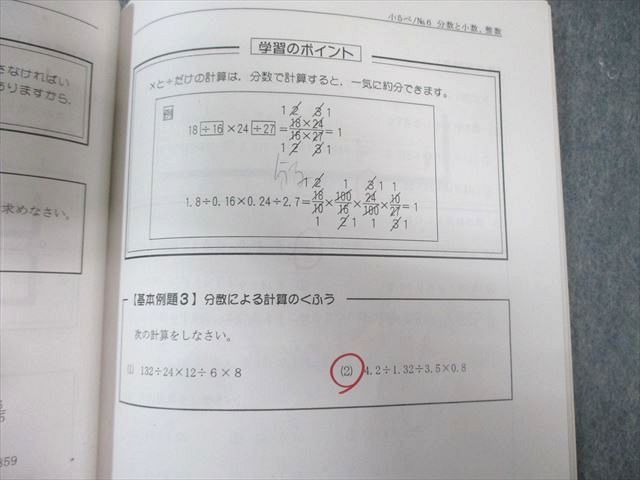 小5ベ/№6 分数と小数、整数
学習のポイント
×と÷だけの計算は，分数で計算すると，一気に約分できます。
さなければい
ありますから、
例
1 2 3 1
18÷16×24÷27=18×24/16×27=1
1 2 3 1
1 2 1 3 1 1
1.8÷0.16×0.24÷2.7=18/10×100/16×24/100×10/27=1
1 2 1 1 3 1
求めなさい。
【基本例題3】分数による計算のくふう
次の計算をしなさい。
(1) 132÷24×12÷6×8
(2) 4.2÷1.32÷3.5×0.8
859